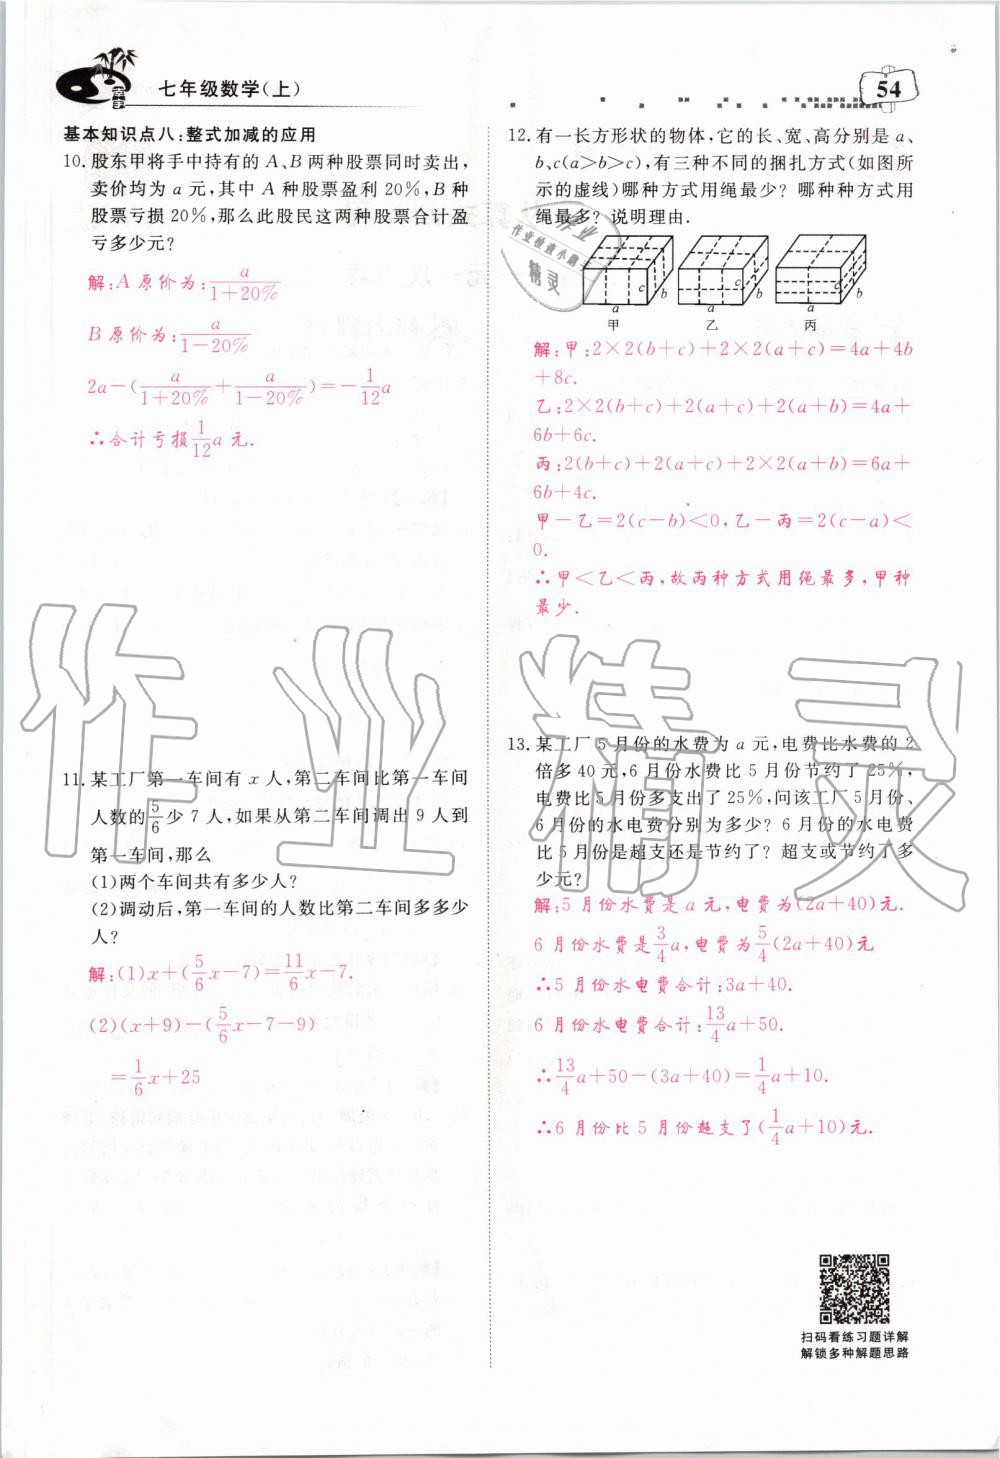 七年级数学(上)
54
基本知识点八:整式加减的应用
10. 股东甲将手中持有的 A、B 两种股票同时卖出,
卖价均为 a 元,其中 A 种股票盈利 20%,B 种
股票亏损 20%,那么此股民这两种股票合计盈
亏多少元?
解:A 原价为:a/(1+20%)
B 原价为:a/(1-20%)
2a-(a/(1+20%)+a/(1-20%))=-1/12a
∴合计亏损1/12a 元.
11. 某工厂第一车间有 x 人,第二车间比第一车间
人数的5/6少 7 人,如果从第二车间调出 9 人到
第一车间,那么
(1)两个车间共有多少人?
(2)调动后,第一车间的人数比第二车间多多少
人?
解:(1)x+(5/6x-7)=11/6x-7.
(2)(x+9)-(5/6x-7-9)
=1/6x+25
12. 有一长方形状的物体,它的长、宽、高分别是 a、
b、c(a>b>c),有三种不同的捆扎方式(如图所
示的虚线)哪种方式用绳最少? 哪种种方式用
绳最多? 说明理由.
c b a c b a c b a
甲 乙 丙
解:甲:2×2(b+c)+2×2(a+c)=4a+4b
+8c.
乙:2×2(b+c)+2(a+c)+2(a+b)=4a+
6b+6c.
丙:2(b+c)+2(a+c)+2×2(a+b)=6a+
6b+4c.
甲-乙=2(c-b)<0,乙-丙=2(c-a)<
0.
∴甲<乙<丙,故丙种方式用绳最多,甲种
最少.
13. 某工厂 5 月份的水费为 a 元,电费比水费的 2
倍多 40 元,6 月份水费比 5 月份节约了 25%,
电费比 5 月份多支出了 25%,问该工厂 5 月份、
6 月份的水电费分别为多少? 6 月份的水电费
比 5 月份是超支还是节约了? 超支或节约了多
少元?
解:5 月份水费是 a 元,电费为(2a+40)元.
6 月份水费是3/4a,电费为5/4(2a+40)元
∴5 月份水电费合计:3a+40.
6 月份水电费合计:13/4a+50.
∴13/4a+50-(3a+40)=1/4a+10.
∴6 月份比 5 月份超支了(1/4a+10)元.
作业精灵
作业检查小助手
精灵
扫码看练习题详解
解锁多种解题思路